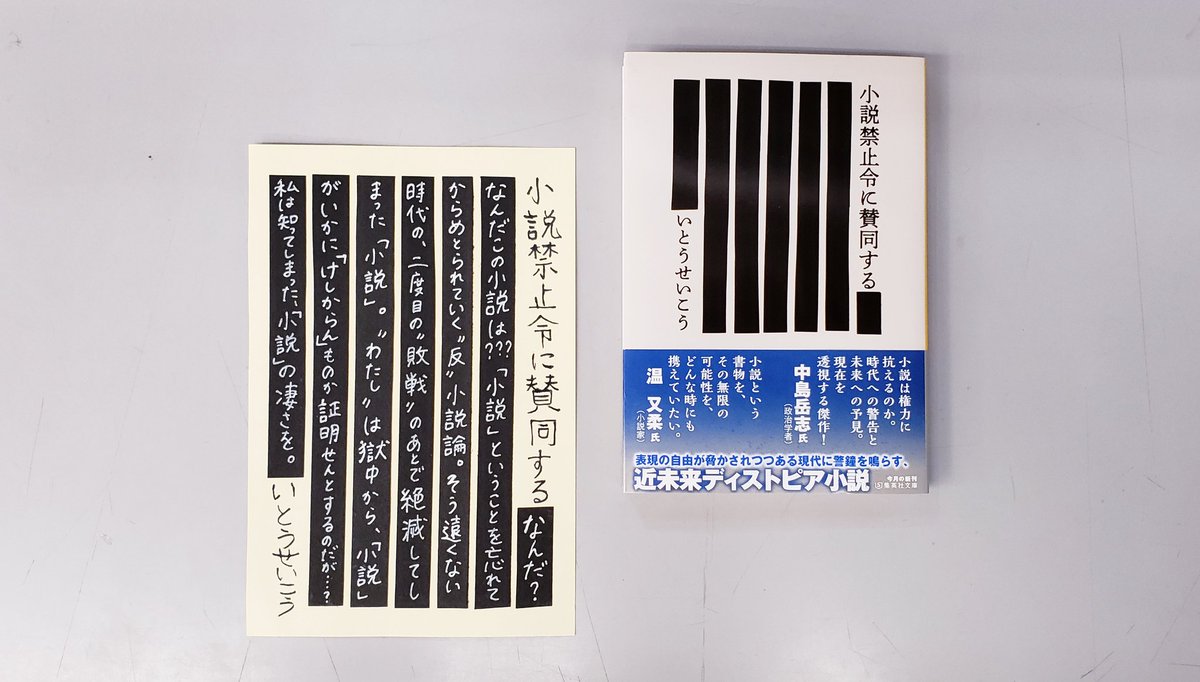 小説禁止令に賛同する なんだ?
なんだこの小説は???「小説」ということを忘れて
からめとられていく〝反〟小説論。そう遠くない
時代の、二度目の〝敗戦〟のあとで絶滅してし
まった「小説」。〝わたし〟は獄中から、「小説」
がいかに「けしからん」ものか証明せんとするのだが…?
私は知ってしまった、「小説」の凄さを。 いとうせいこう
小説禁止令に賛同する
いとうせいこう
小説は権力に
抗えるのか。
時代への警告と
未来への予見。
現在を
透視する傑作!
中島岳志氏
(政治学者)
小説という
書物を、
その無限の
可能性を、
どんな時にも
携えていたい。
温 又柔氏
(小説家)
表現の自由が脅かされつつある現代に警鐘を鳴らす、
近未来ディストピア小説
今月の新刊
集英社文庫